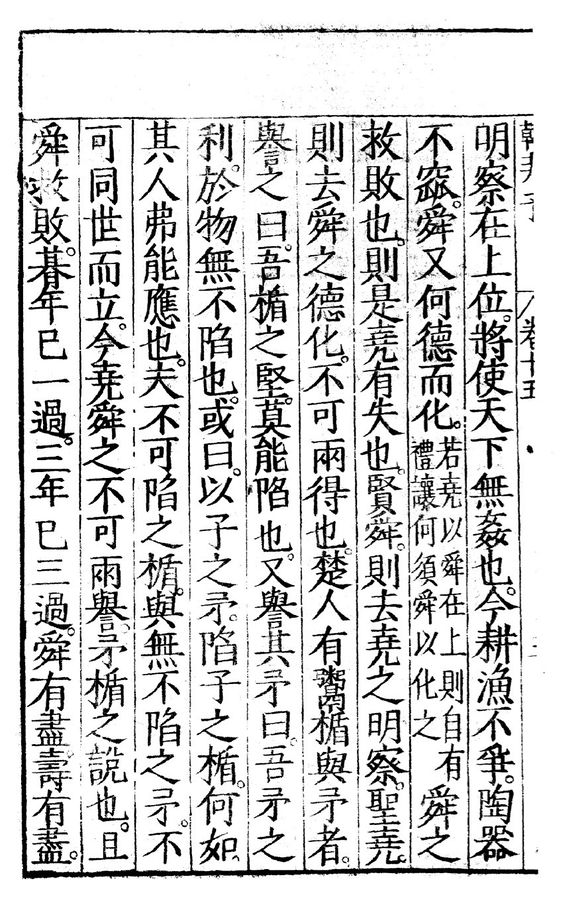 卷十五
明察在上位。將使天下無姦也。今耕漁不爭。陶器
不窳。舜又何德而化。若堯以舜在上則自有禮讓何須舜以化之舜之
救敗也。則是堯有失也。賢舜。則去堯之明察。聖堯。
則去舜之德化。不可兩得也。楚人有鬻楯與矛者。
譽之曰。吾楯之堅。莫能陷也。又譽其矛曰。吾矛之
利。於物無不陷也。或曰。以子之矛。陷子之楯。何如。
其人弗能應也。夫不可陷之楯。與無不陷之矛。不
可同世而立。今堯舜之不可兩譽。矛楯之說也。且
舜救敗。暮年已一過。三年已三過。舜有盡壽有盡。